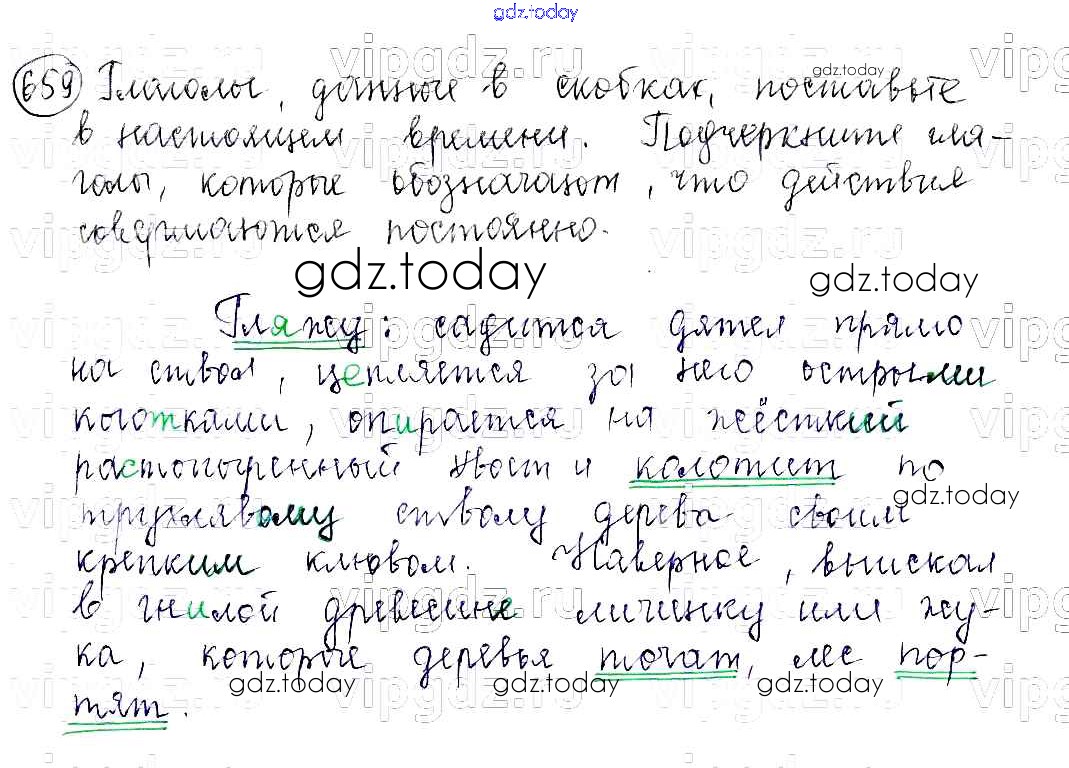 gdz.today
659 Глаголы, данные в скобках, поставьте
в настоящем времени. Подчеркните гла-
голы, которые обозначают, что действия
совершаются постоянно.
gdz.today
gdz.today
Гляжу: садится дятел прямо
на ствол, цепляется за него острыми
коготками, опирается на жёсткий
растопыренный хвост и колотит по
трухлявому стволу дерева своим
крепким клювом. Наверное, выискал
в гнилой древесине личинку или жу-
ка, которые деревья точат, лес пор-
тят.
gdz.today
gdz.today
gdz.today
gdz.today
vipgdz.ru